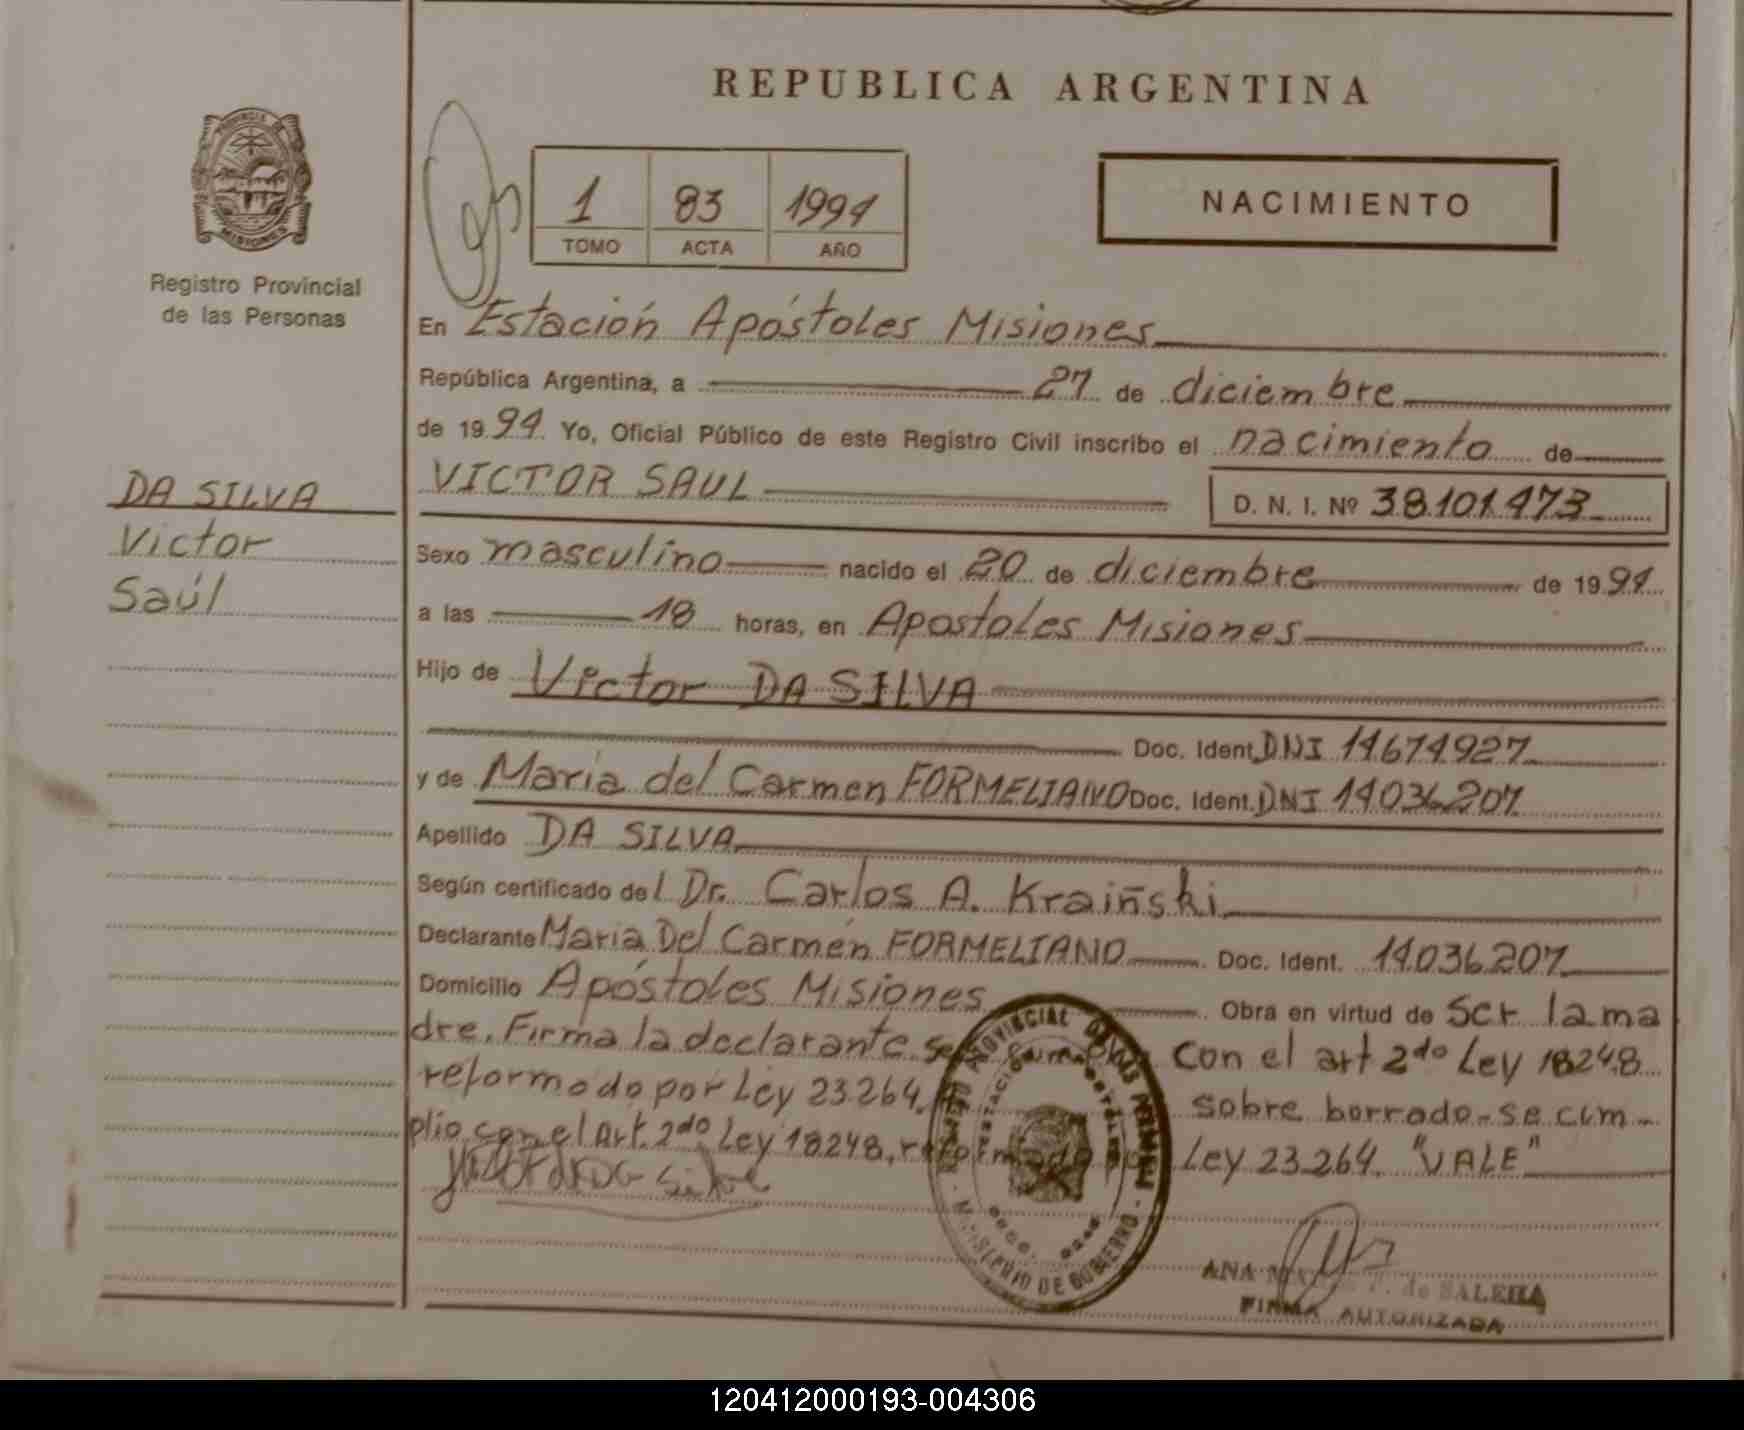 REPUBLICA ARGENTINA
PROVINCIA DE
MISIONES
Registro Provincial
de las Personas
1 83 1994
TOMO ACTA AÑO
NACIMIENTO
En Estación Apóstoles Misiones
República Argentina, a 27 de diciembre
de 1994 Yo, Oficial Público de este Registro Civil inscribo el nacimiento de
VICTOR SAUL D. N. I. Nº 38.101.473
DA SILVA
Victor
Saúl
Sexo masculino nacido el 20 de diciembre de 1994
a las 18 horas, en Apostoles Misiones
Hijo de Victor DA SILVA
Doc. Ident. DNI 14674927
y de Maria del Carmen FORMELIANO Doc. Ident. DNI 14.036.207
Apellido DA SILVA
Según certificado del Dr. Carlos A. Kraiñski
Declarante Maria Del Carmén FORMELIANO Doc. Ident. 14.036.207
Domicilio Apóstoles Misiones Obra en virtud de Ser la ma
dre. Firma la declarante se Con el art 2do Ley 18248
reformado por Ley 23.264. sobre borrado-se cum-
plio con el art. 2do Ley 18248, reformado por Ley 23.264. "VALE"
REGISTRO PROVINCIAL DE LAS PERSONAS
MINISTERIO DE GOBIERNO
ANA de SALEHA
FIRMA AUTORIZADA
120412000193-004306